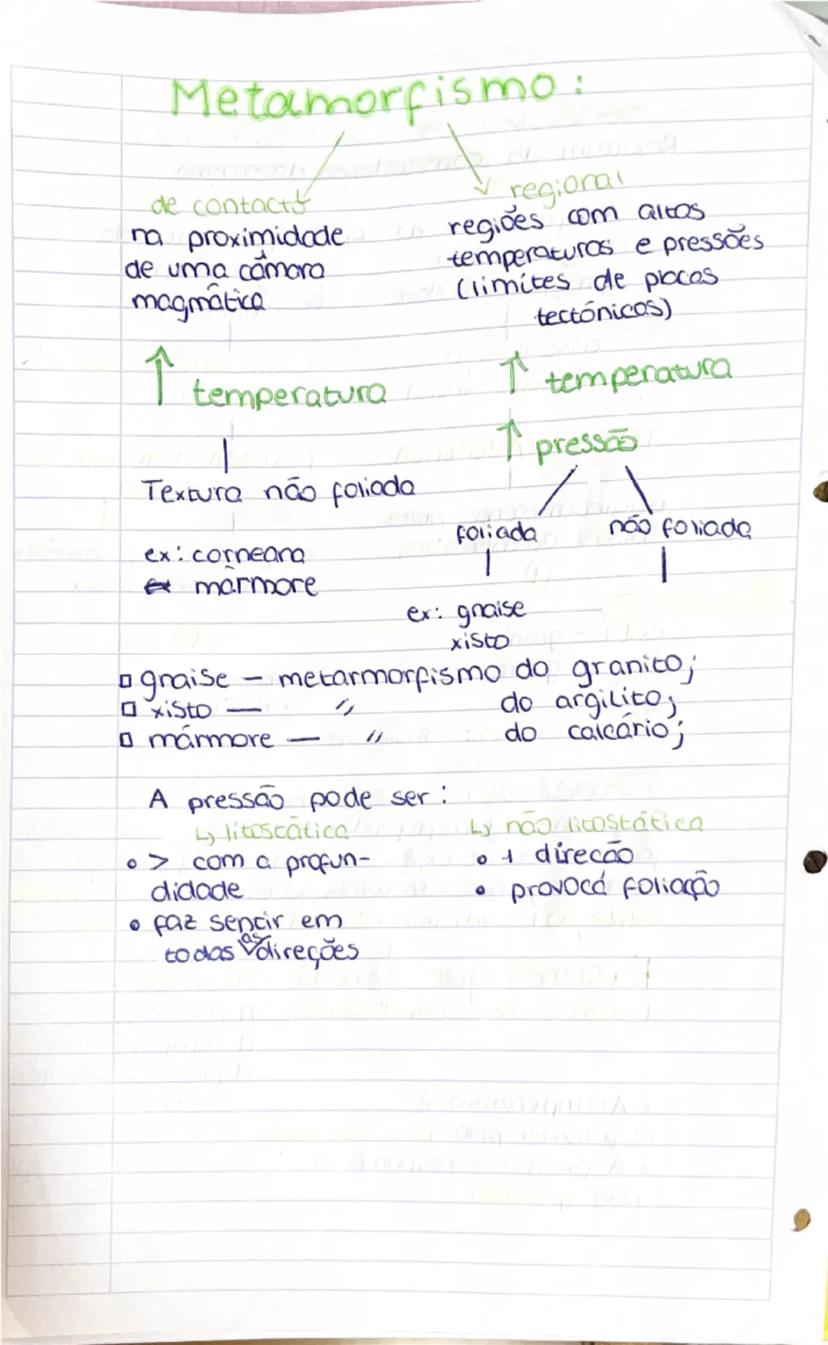 Metamorfismo:
de contacto
na proximidade
de uma câmara
magmática
↑ temperatura
Textura não foliada
ex: corneana
mármore
regional
regiões com altas
temperaturas e pressões
(limites de placas
tectónicas)
↑ temperatura
↑ pressão
foliada não foliada
ex: gnaise
xisto
▫ gnaise – metarmorfismo do granito;
▫ xisto — " do argilito;
▫ mármore — " do calcário;
A pressão pode ser:
↳ litostática
• > com a profun-
didade
• faz sentir em
todas as direções
↳ não litostática
• 1 direcão
• provoca foliação